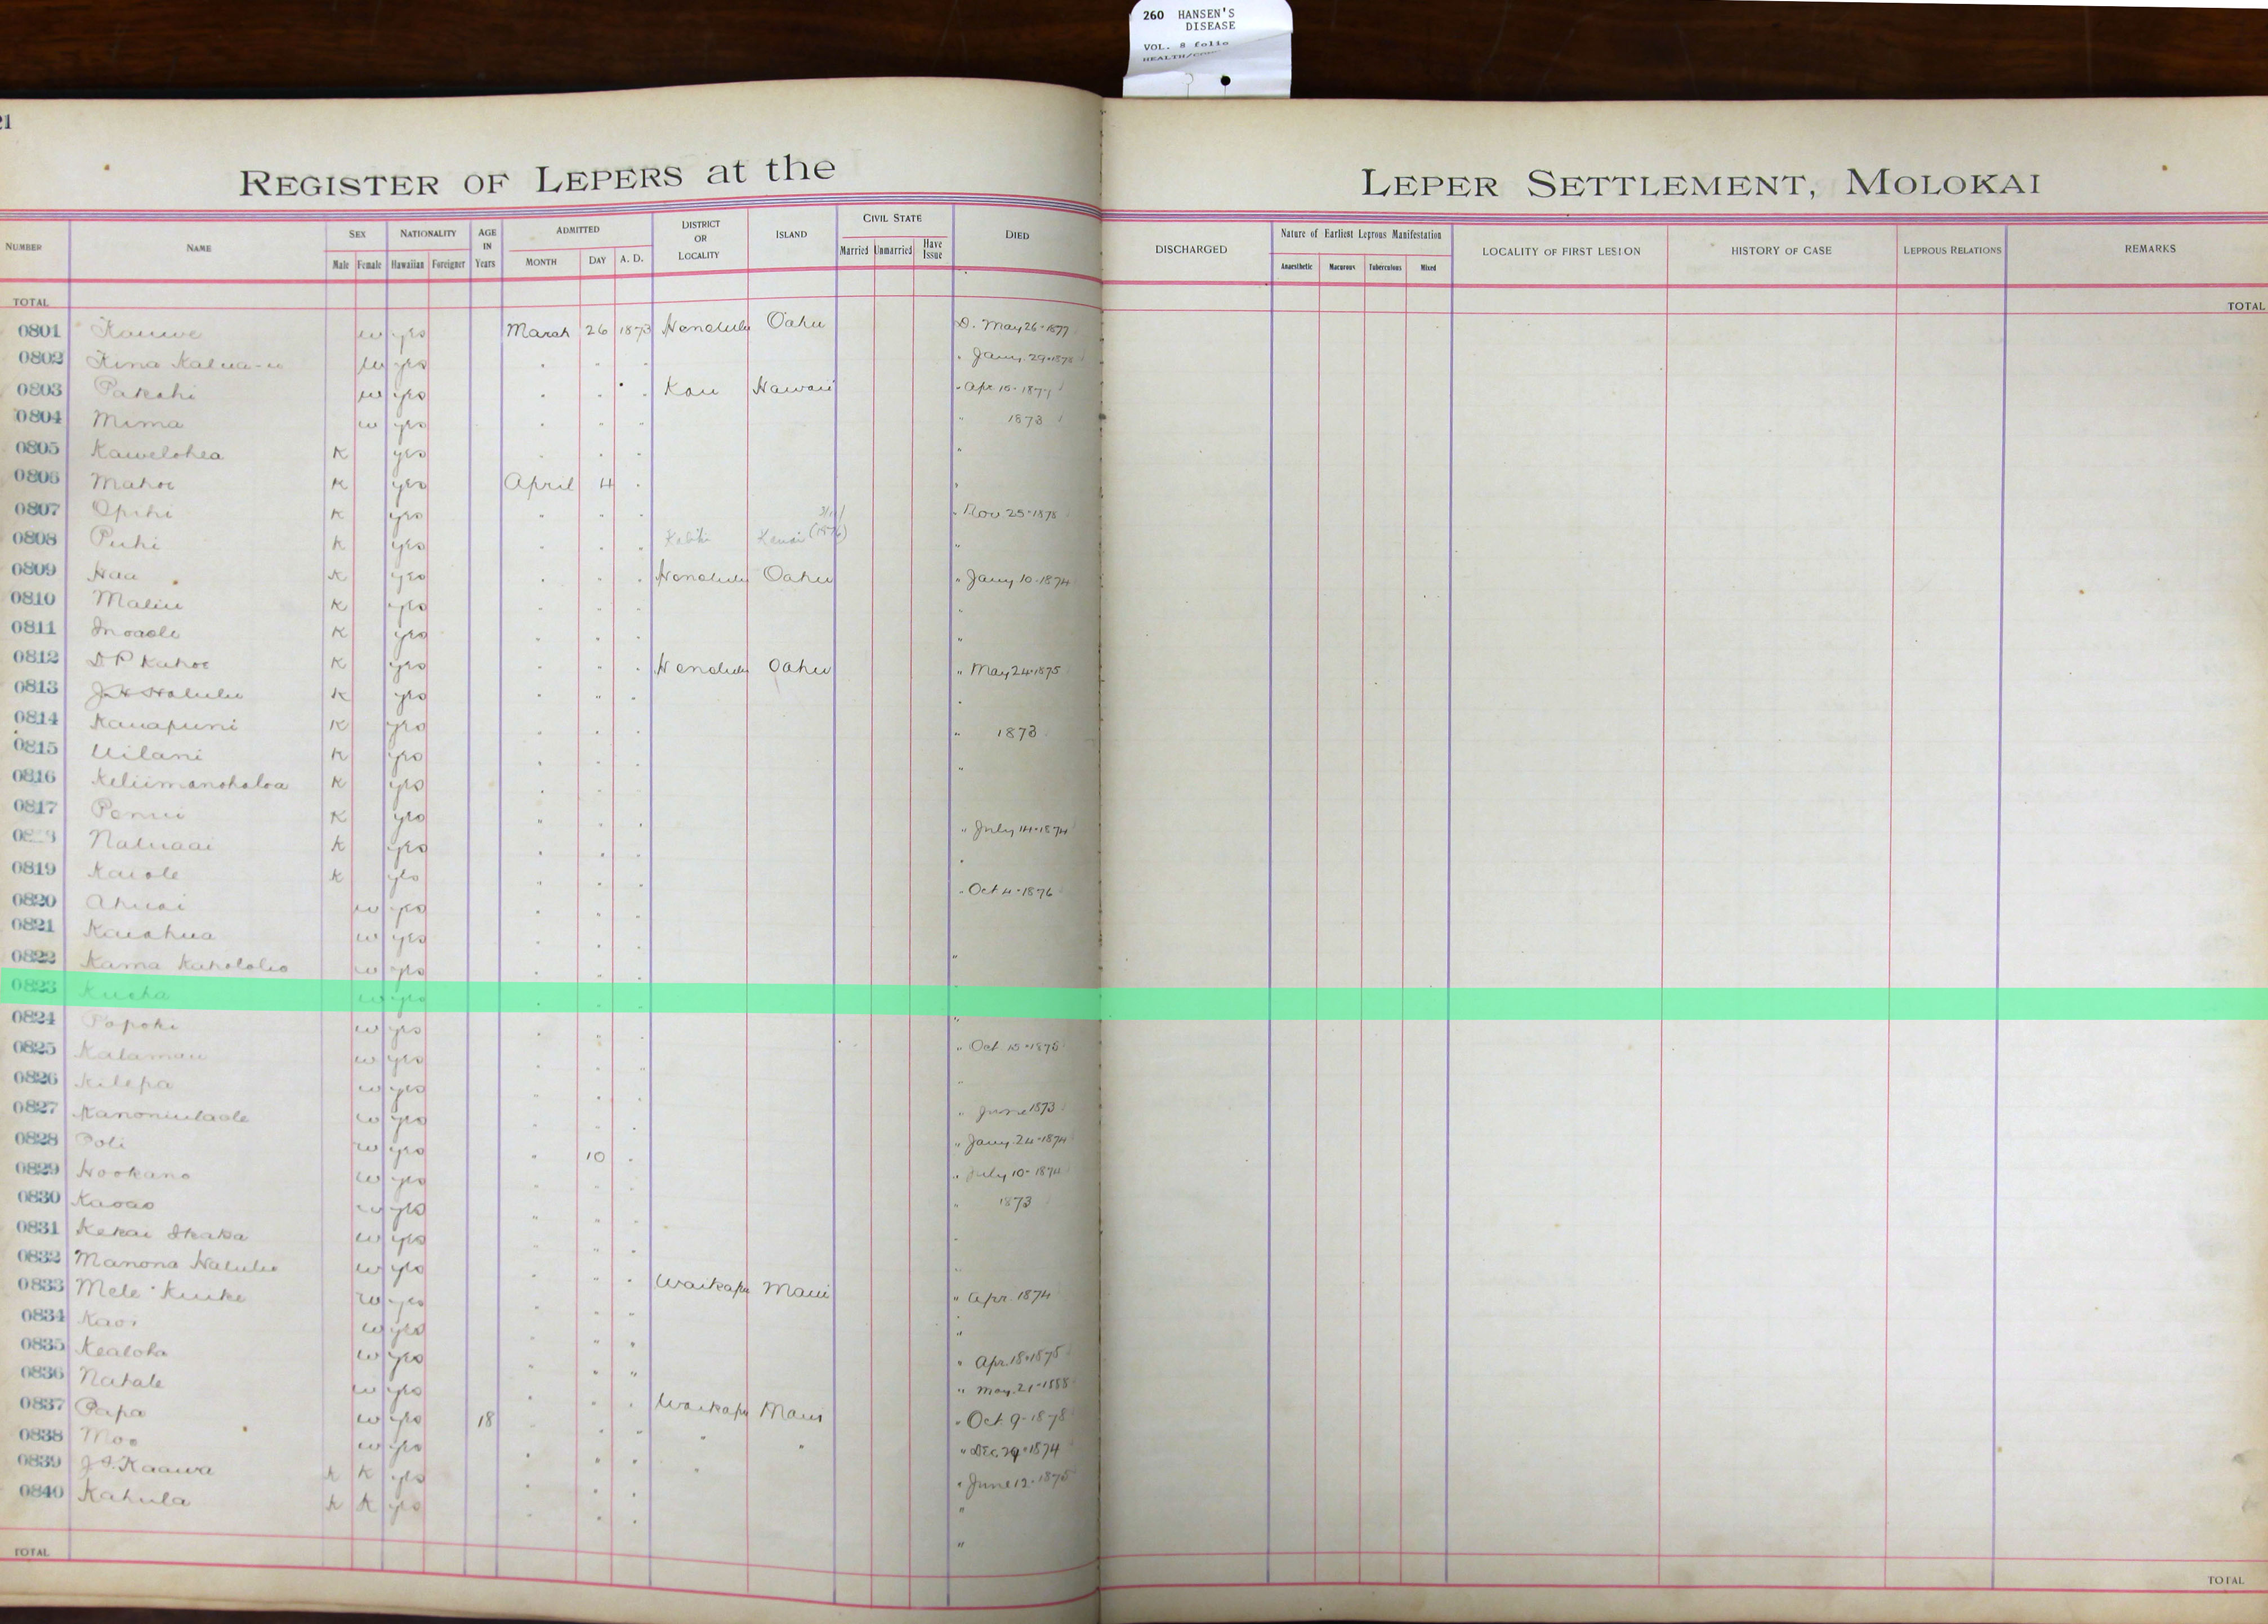 260 HANSEN'S
DISEASE
VOL. 8 folio
21
REGISTER OF LEPERS at the LEPER SETTLEMENT, MOLOKAI
NUMBER NAME SEX Male Female NATIONALITY Hawaiian Foreigner AGE IN Years ADMITTED MONTH DAY A. D. DISTRICT OR LOCALITY ISLAND CIVIL STATE Married Unmarried Have Issue DIED DISCHARGED Nature of Earliest Leprous Manifestation Anaesthetic Macurous Tuberculous Mixed LOCALITY OF FIRST LESION HISTORY OF CASE LEPROUS RELATIONS REMARKS
TOTAL TOTAL
0801 Kauwe w yes March 26 1873 Honolulu Oahu D. May 26-1877
0802 Kina Kalua-u w yes " " " " Jany. 29-1875
0803 Pakahi w yes " " " Kau Hawaii " Apr 15-1877
0804 Mima w yes " " " " 1873
0805 Kawelohea K yes " " " "
0806 Mahoe K yes April 4 " "
0807 Opihi K yes " " " " Nov 25-1878
0808 Puhi K yes " " " Kauai (1876) "
0809 Haa K yes " " " Honolulu Oahu " Jany 10-1874
0810 Maliu K yes " " " "
0811 Inoaole K yes " " " "
0812 D P Kahoe K yes " " " Honolulu Oahu " May 24-1875
0813 J H Halulu K yes " " " "
0814 Kauapuni K yes " " " " 1873
0815 Uilani K yes " " " "
0816 Keliimanohaloa K yes " " "
0817 Penui K yes " " " " July 14-1874
Naluaai K yes " " " "
0819 Kaiole K yes " " " " Oct 4-1876
0820 Ahuai w yes " " "
0821 Kaiahua w yes " " " "
0822 Kama Kahololio w yes " " "
0823 Kueha w yes " " " "
0824 Papoki w yes " " " "
0825 Kalamau w yes " " " " Oct 15-1875
0826 Kilepa w yes " " " "
0827 Kanoniulaole w yes " " " " June 1873
0828 Poli w yes " 10 " " Jany. 24-1874
0829 Hookano w yes " " " July 10-1874
0830 Kaoao w yes " " " 1873
0831 Kekai Ikaka w yes " " " "
0832 Manona Halulu w yes " " " "
0833 Mele Kuike w yes " " " Waikapu Maui " Apr. 1874
0834 Kaoi w yes " " "
0835 Kealoha w yes " " " " Apr. 18-1875
0836 Nahale w yes " " " " May. 21-1888
0837 Papa w yes 18 " " " Waikapu Maui " Oct 9-1878
0838 Moo w yes " " " " " " Dec. 29-1874
0839 J. I. Kaawa K K yes " " " " " June 12-1875
0840 Kahula K K yes " " " "
TOTAL TOTAL